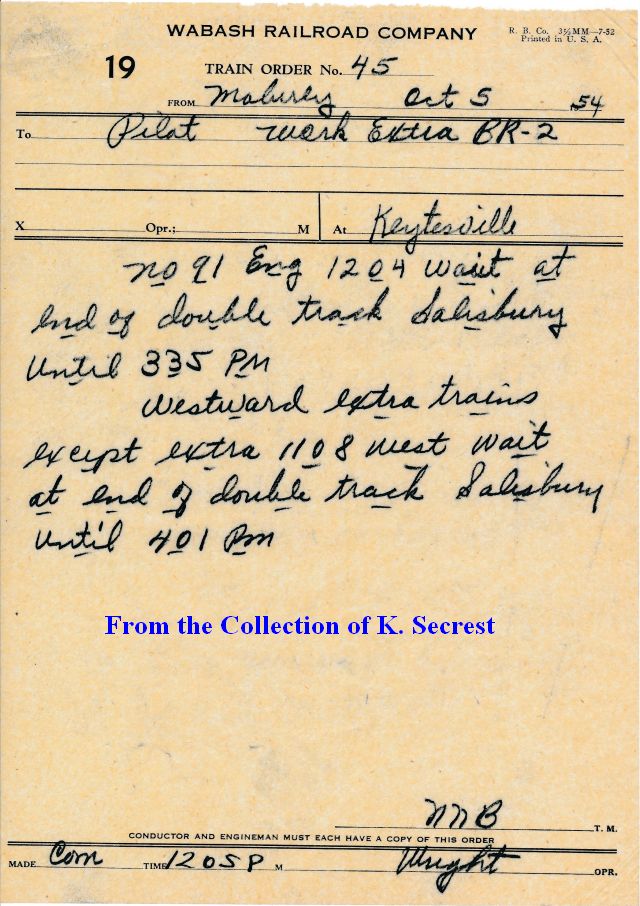 WABASH RAILROAD COMPANY
R. B. Co. 3½MM—7-52
Printed in U. S. A.
19
TRAIN ORDER No. 45
FROM Moberly Oct 5 1954
To Pilot Work Extra BR-2
X Opr.; M At Keytesville
No 91 Eng 1204 wait at
end of double track Salisbury
until 335 PM
Westward extra trains
except extra 1108 west wait
at end of double track Salisbury
until 401 PM
From the Collection of K. Secrest
T. M.
CONDUCTOR AND ENGINEMAN MUST EACH HAVE A COPY OF THIS ORDER
MADE Com TIME 1205 P M Wright OPR.